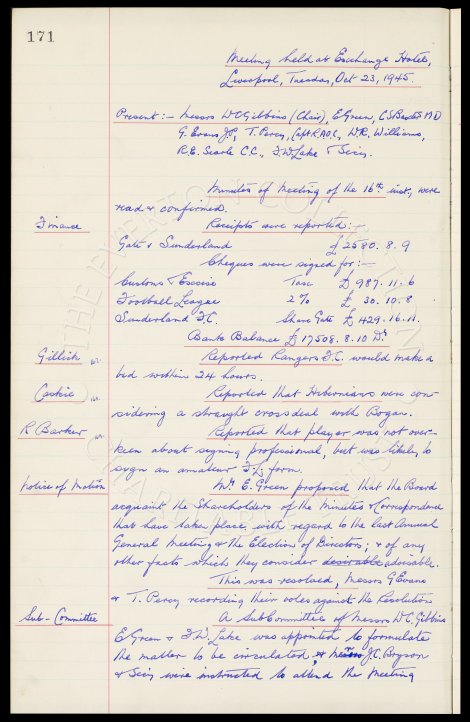 171
Meeting held at Exchange Hotel,
Liverpool, Tuesday, Oct 23, 1945.
Present :- Messrs W.C. Gibbins (Chair), E. Green, C.S. Baxter MD
G. Evans J.P., T. Percy, Capt R.A.O.C, W.R. Williams,
R.E. Searle C.C., F.W. Lake & Secy.
Minutes of Meeting of the 16th inst, were
read & confirmed.
Finance Receipts were reported:-
Gate v Sunderland £2580. 8. 9
Cheques were signed for :-
Customs & Excise Tax £ 987. 11. 6
Football League 2% £ 30. 10. 8
Sunderland F.C. Share Gate £ 429. 16. 11.
Bank Balance £17508. 8. 10 Dr
Gillick Reported Rangers F.C. would make a
bid within 24 hours.
Caskie Reported that Hibernians were con-
sidering a straight cross deal with Bogan.
R Barker Reported that player was not over-
keen about signing professional, but was likely to
sign an amateur F/L form.
Notice of Motion Mr E. Green proposed that the Board
acquaint the Shareholders of the Minutes & Correspondence
that have taken place with regard to the last Annual
General Meeting & the Election of Directors; & of any
other facts which they consider desirable advisable.
This was resolved, Messrs G Evans
& T. Percy recording their votes against the Resolution
Sub-Committee A SubCommittee of Messrs W C. Gibbins
E Green & F.W. Lake was appointed to formulate
the matter to be circulated, & Messrs J.C. Bryson
& Secy were instructed to attend the Meeting